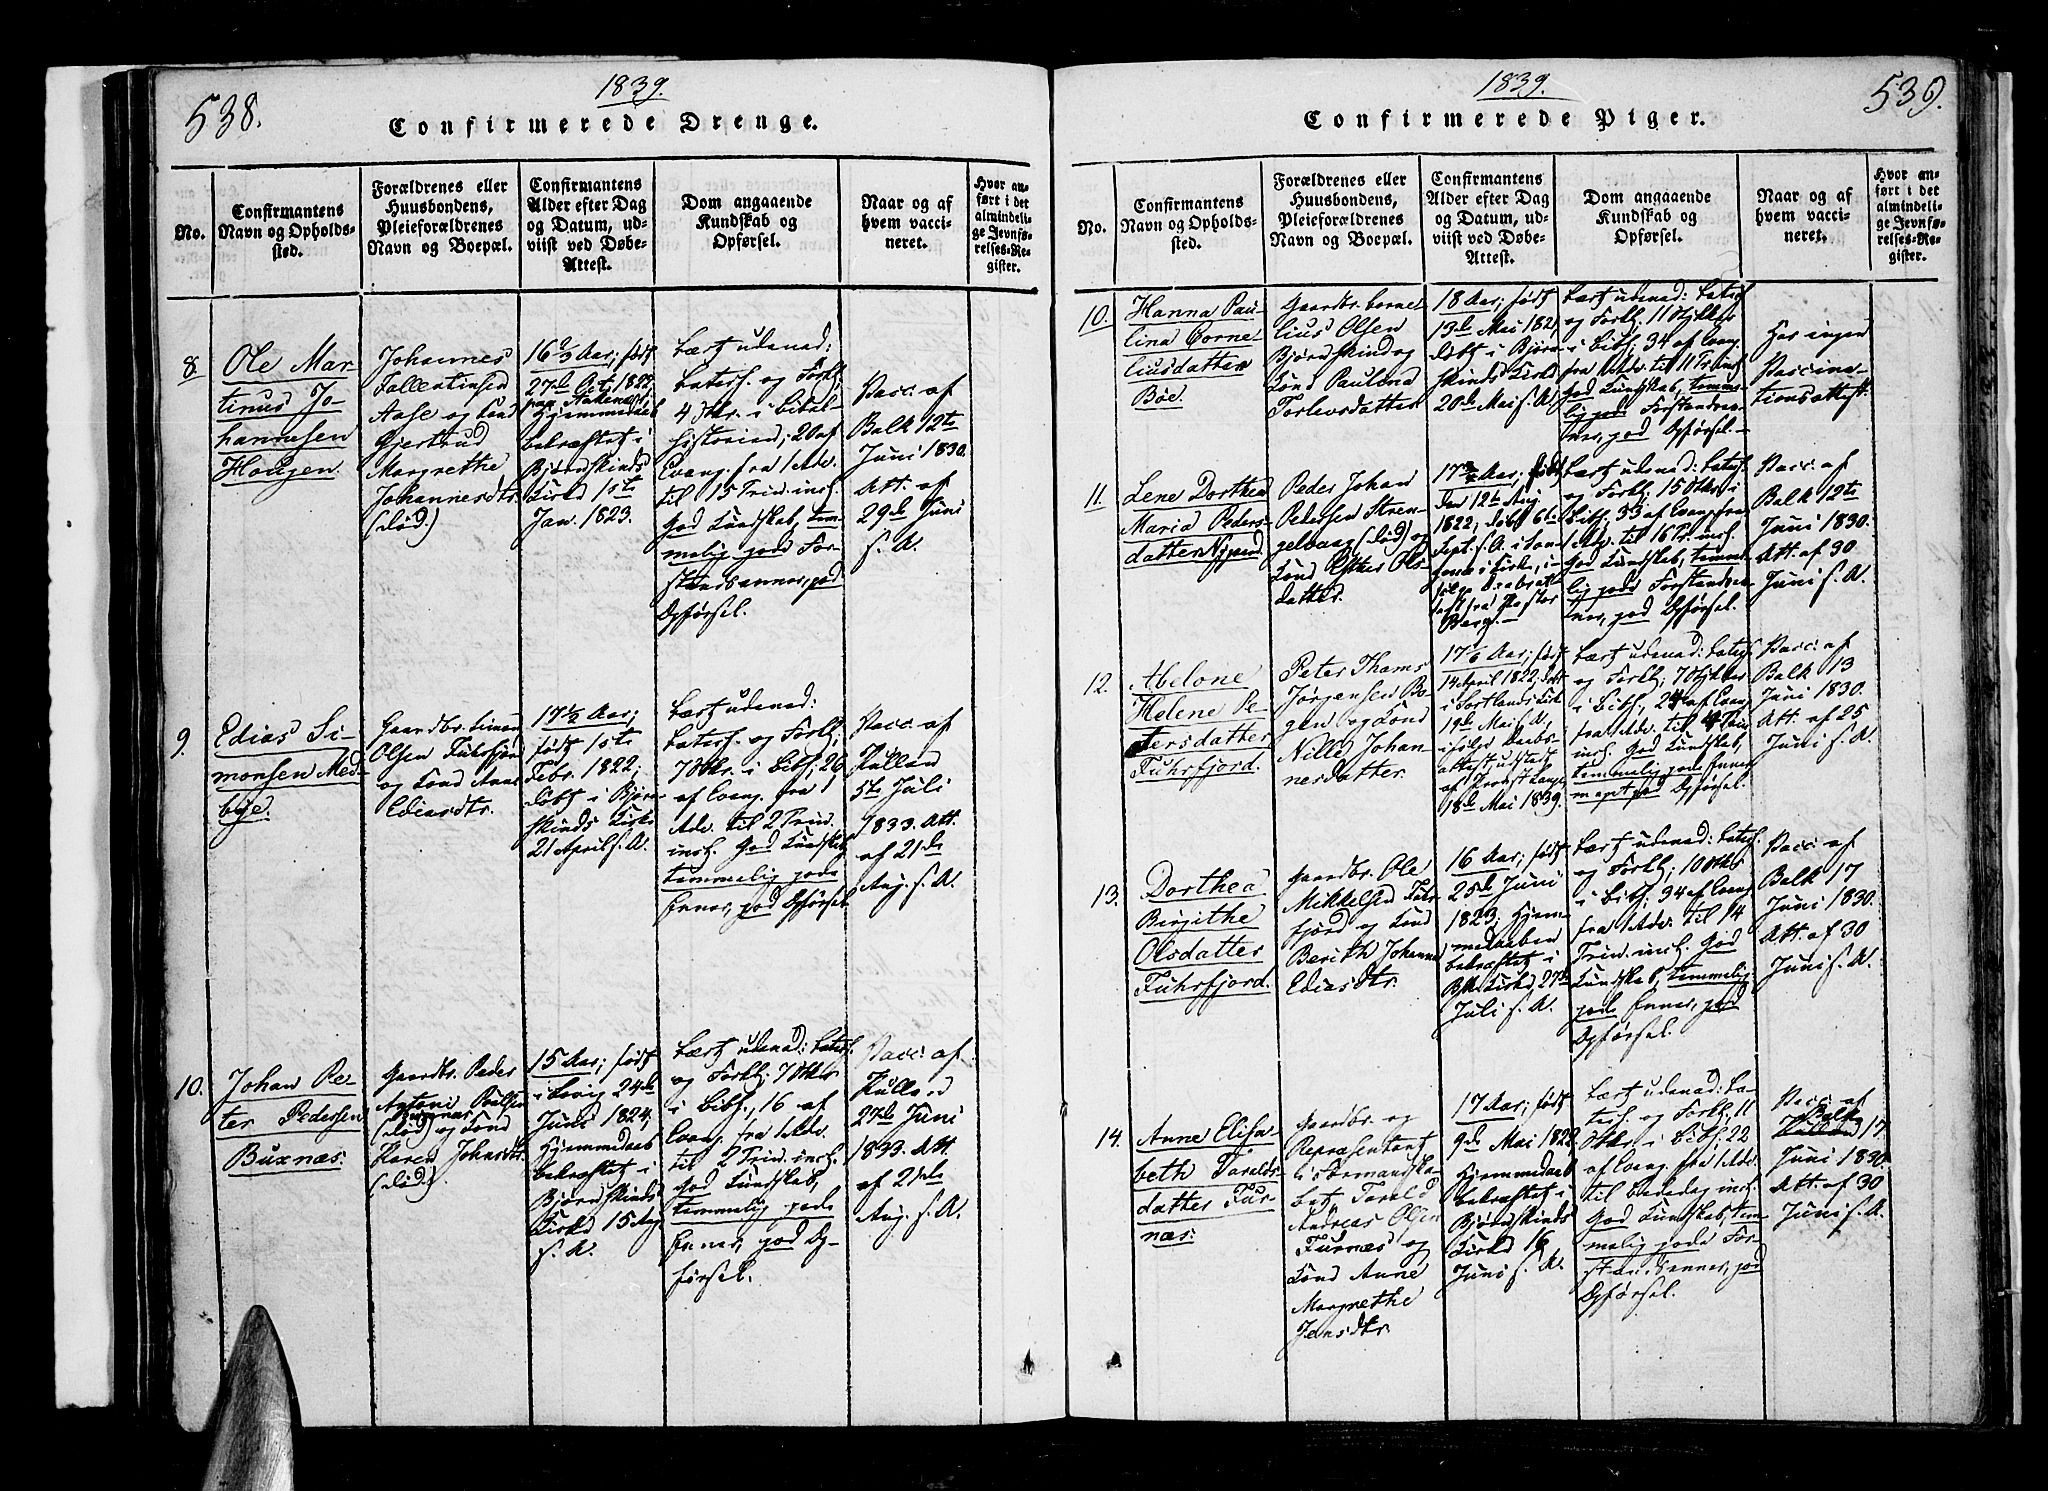 538.
1839.
Confirmerede Drenge.
No.
Confirmantens
Navn og Opholds-
sted.
Forældrenes eller
Huusbondens,
Pleieforældrenes
Navn og Boepæl.
Confirmantens
Alder efter Dag
og Datum, ud-
viist ved Døbe-
Attest.
Dom angaaende
Kundskab og
Opførsel.
Naar og af
hvem vacci-
neret.
Hvor an-
ført i det
almindeli-
ge Jevnfø-
relses-Re-
gister.
8
Ole Mar-
tinus Jo-
hannesen
Hougen.
Johannes
Fallentinsen
Aase og Kone
Gjertrud
Margrethe
Johannesdtr.
(død.)
16 2/3 Aar; født
27de Oct. 1822
Hjemmedaab
bekræftet i
Bjørnskinds
Kirke 1ste
Jan. 1823.
Læst udenad:
Catech. og Forkl;
4 Stkr. i Bibel-
historien; 20 af
Evang. fra 1 Adv.
til 15 Trin. incl.
God Kundskab, tem-
melig god For-
standsevner, god
Opførsel.
Vacc: af
Balk 12te
Juni 1830.
Att. af
29de Juni
s. A.
9.
Edias Si-
monsen Med-
bye.
Gaardbr. Simon
Olsen Fuhrfjord
og Kone Ane
Ediasdtr.
17 1/2 Aar;
født 1ste
Febr. 1822;
døbt i Bjørn-
skinds Kirke
21 April s. A.
Læst udenad:
Catech. og Forkl;
7 Stkr. i Bibh; 26
af Evang. fra 1
Adv. til 2 Trin.
incl. God Kundskab,
temmelig gode
Evner, god Opførsel.
Vacc: af
Kulland
5te Juli
1833. Att.
af 21de
Aug. s. A.
10.
Johan Pe-
ter Pedersen
Buxnæs.
Gaardbr. Peder
Antoni Poulsen
Buxnæs
(død) og Kone
Karen Johnsdtr.
(død)
15 Aar; født
i Lovig 24de
Juni 1824;
Hjemmedaab
bekræftet i
Bjørnskinds
Kirke 15 Aug
s. A.
Læst udenad: Catech.
og Forkl; 7 Stkr
i Bibh., 16 af
Evang. fra 1 Adv.
til 2 Trin. incl.
God Kundskab,
temmelig gode
Evner, god Op-
førsel.
Vacc: af
Kulland
27de Juni
1833. Att
af 21de
Aug. s. A.
1839.
539.
Confirmerede Piger.
No.
Confirmantens
Navn og Opholds-
sted.
Forældrenes eller
Huusbondens,
Pleieforældrenes
Navn og Boepæl.
Confirmantens
Alder efter Dag
og Datum, ud-
viist ved Døbe-
Attest.
Dom angaaende
Kundskab og
Opførsel.
Naar og af
hvem vacci-
neret.
Hvor an-
ført i det
almindeli-
ge Jevnfø-
relses-Re-
gister.
10.
Hanna Pau-
lina Corne-
liusdatter
Bøe.
Gaardbr. Corne-
lius Olsen
Bjørnskind og
Kone Paulena
Torlevsdatter
18 Aar; født
13de Mai 1821
døbt i Bjørn-
skinds Kirke
20de Mai s. A.
Læst udenad: Catech.
og Forkl; 11 Stykker
i Bibh; 34 af Evang.
fra 1 Adv. til 11 Tr. incl.
God Kundskab, temme-
lig god Forstandsev-
ner, god Opførsel.
Har ingen
Vaccina-
tionsattest.
11.
Lene Dorthea
Maria Peders-
datter Nygaard
Peder Johan
Pedersen Stren-
gelvaag (død) og
Kone Esther Ols-
datter.
17 Aar; født
den 12te Aug
1822; døbt 6te
Sept. s. A. i
Kirke, i-
følge Daabsatt-
test fra Pastor
Berg.
Læst udenad: Catech.
og Forkl; 15 Stkr. i
Bibh; 33 af Evang. fra
1 Adv. til 16 Tr. incl.
God Kundskab, temme-
lig gode Forstandsev-
ner, god Opførsel.
Vacc: af
Balk 12te
Juni 1830.
Att. af 30
Juni s. A.
12.
Abelone
Helene Pe-
tersdatter
Fuhrfjord.
Peter Thams
Jørgensen Bo-
gen og Kone
Nille Johan-
nesdatter.
17 1/6 Aar; født
14 April 1822, døbt
i Sortlands Kirke
19de Mai s. A,
ifølge Daabs-
attest, udstedt
af Provst
18de Mai 1839.
Læst udenad: Catech.
og Forkl; 7 Stykker
i Bibh, 24 af Evang
fra 1 Adv. til 4 Trin
incl. God Kundskab,
temmelig gode Evner
god Opførsel.
Vacc: af
Balk 13
Juni 1830.
Att. af 25
Juni s. A.
13.
Dorthea
Birgithe
Olsdatter
Fuhrfjord.
Gaardbr. Ole
Mikkelsen Fuhr-
fjord og Kone
Berith Johanna
Ediasdtr.
16 Aar; født
25de Juni
1823; Hjem-
medaaben
bekræftet i
Bjk. Kirke, 27de
Juli s. A.
Læst udenad: Catech.
og Forkl; 10 Stkr
i Bibh; 34 af Evang
fra 1 Adv. til 14
Trin. incl. God
Kundskab, temmelig
gode Evner, god
Opførsel.
Vacc: af
Balk 17
Juni 1830.
Att. af 30
Juni s. A.
14.
Anne Elisa-
beth Taralds-
datter Fur-
næs.
Gaardbr. og
Repræsentant
i Formandska-
bet Tarald
Andreas Olsen
Furnæs og
Kone Anne
Margrethe
Jensdtr.
17 Aar; født
9de Mai 1822
Hjemmedaab
bekræftet i
Bjørnskinds
Kirke 16
Juni s. A.
Læst udenad: Ca-
tech. og Forkl; 11
Stkr i Bibh; 22
af Evang. fra 1 Adv.
til Bededag incl.
God Kundskab, tem-
melig gode For-
standsevner, god
Opførsel.
Vacc: af
Balk
17
Juni 1830.
Att. af 30
Juni s. A.